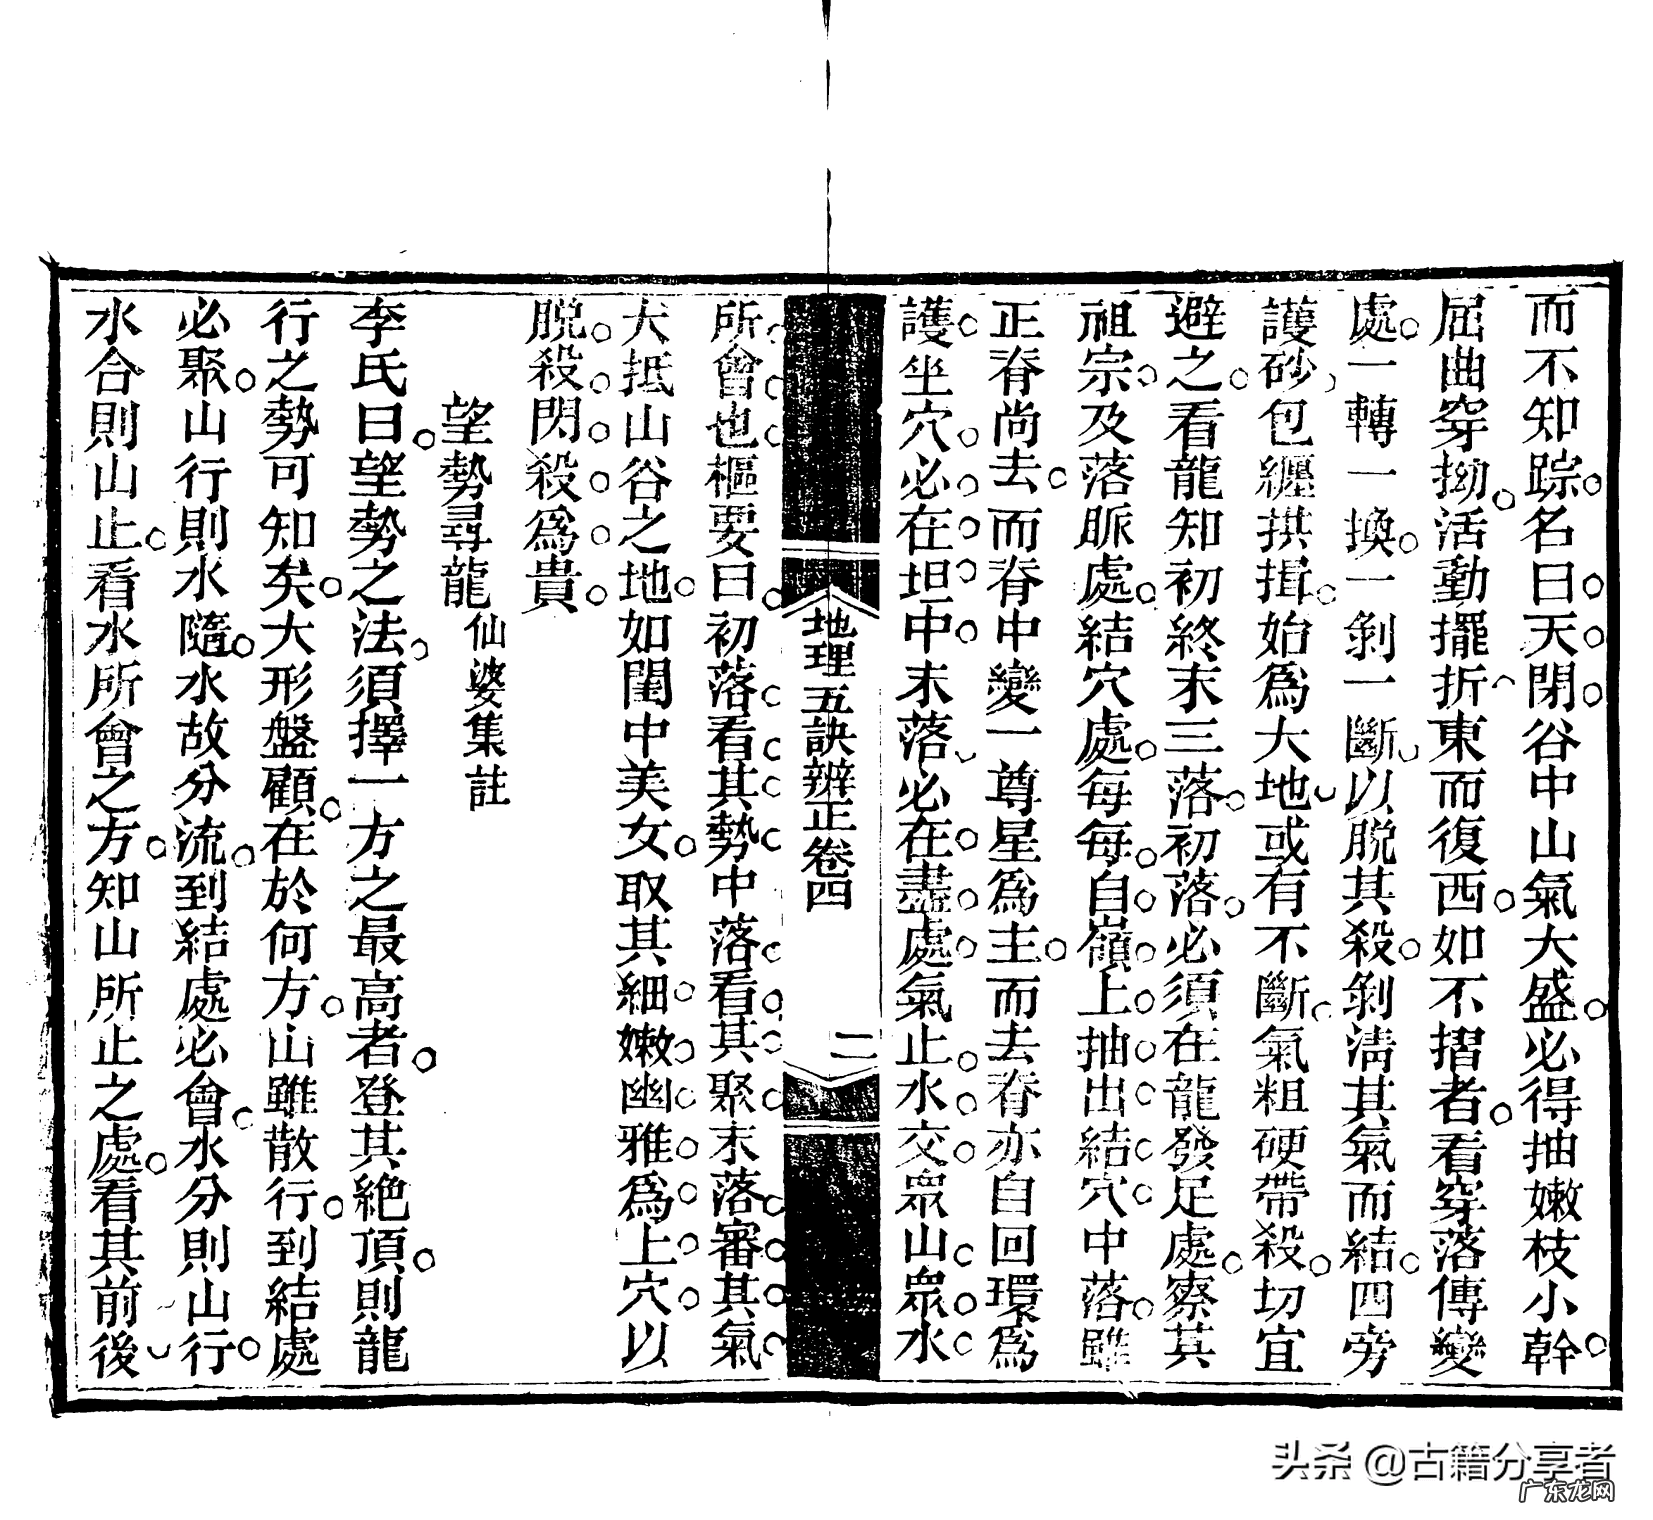 而不知踪名曰天閉谷中山氣大盛必得抽嫩枝小幹
屈曲穿拗活動擺折東而復西如不摺者看穿落傳變
處一轉一換一剝一斷以脫其殺剝淸其氣而結四旁
護砂包纒拱揖始爲大地或有不斷氣粗硬帶殺切宜
避之看龍知初終末三落初落必須在龍發足處察其
祖宗及落脈處結穴處每每自嶺上抽出結穴中落雖
正脊尚去而脊中變一尊星爲主而去脊亦自回環爲
護坐穴必在坦中末落必在盡處氣止水交眾山眾水
地理五訣辨正卷四
二
所會也樞要曰初落看其勢中落看其聚末落審其氣
大抵山谷之地如閨中美女取其細嫩幽雅爲上穴以
脫殺閃殺爲貴
望勢尋龍 仙婆集註
李氏曰望勢之法須擇一方之最高者登其絕頂則龍
行之勢可知矣大形盤顧在於何方山雖散行到結處
必聚山行則水隨水故分流到結處必會水分則山行
水合則山止看水所會之方知山所止之處看其前後
头条 @古籍分享者
广东龙网